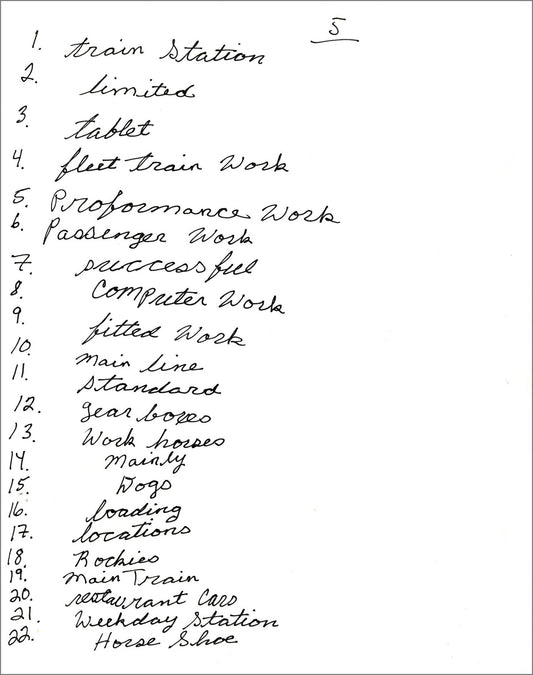 5
1. train Station
2. limited
3. tablet
4. fleet train Work
5. Proformance Work
6. Passenger Work
7. successful
8. Computer Work
9. fitted Work
10. Main line
11. Standard
12. gear boxes
13. Work horses
14. Mainly
15. Dogs
16. loading
17. locations
18. Rockies
19. Main Train
20. restaurant Cars
21. Weekday Station
22. Horse Shoe